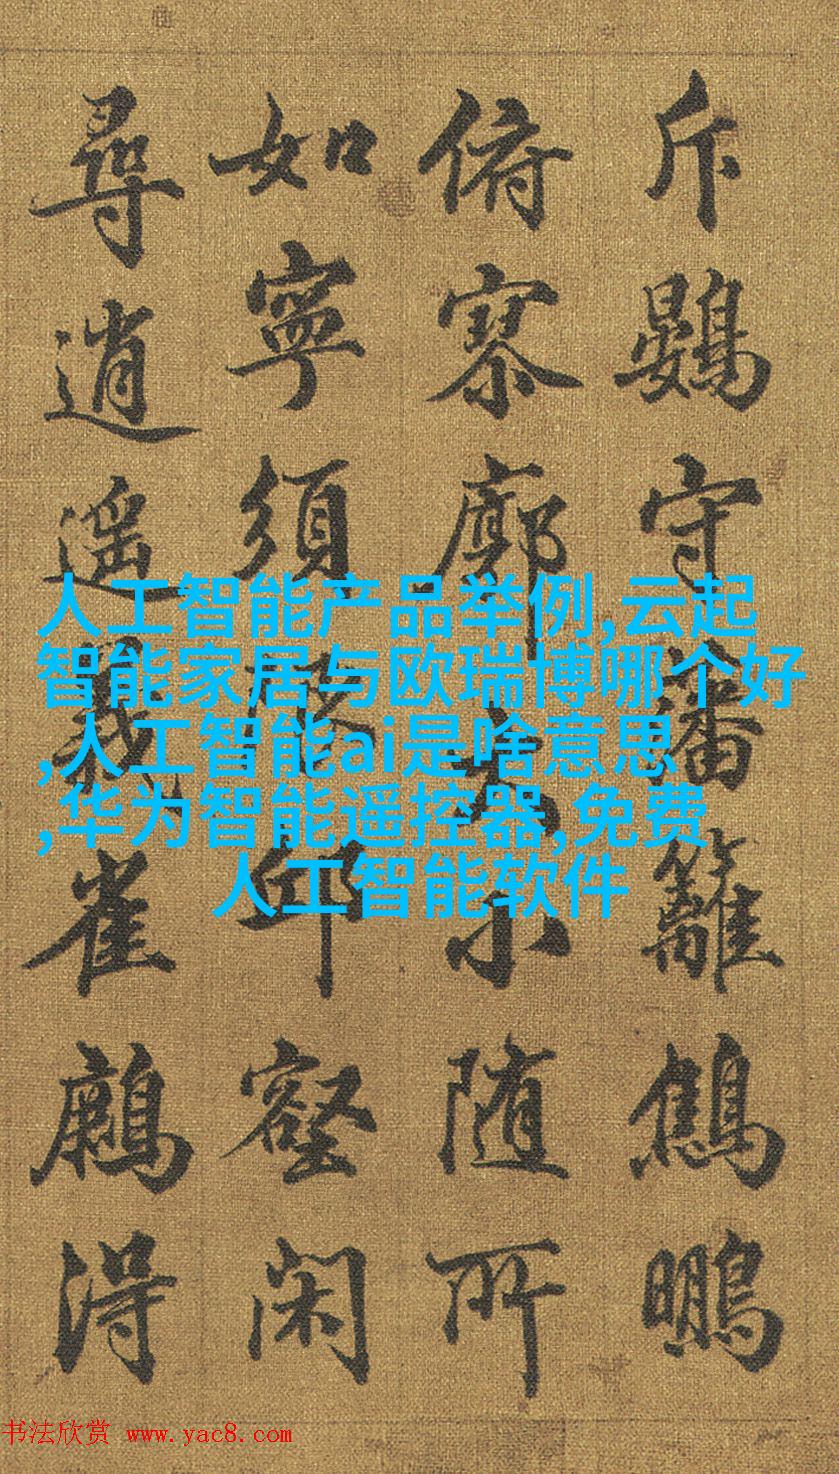 斥鷃守籓籬鷦鵬
俯寥廓大小随所
如寧須邱壑閑
尋逍遥義雀淂
人工智能产品举例,云起
智能家居与欧瑞博哪个好
,人工智能ai是啥意思
,华为智能遥控器,免费
人工智能软件
书法欣赏 www.yac8.com